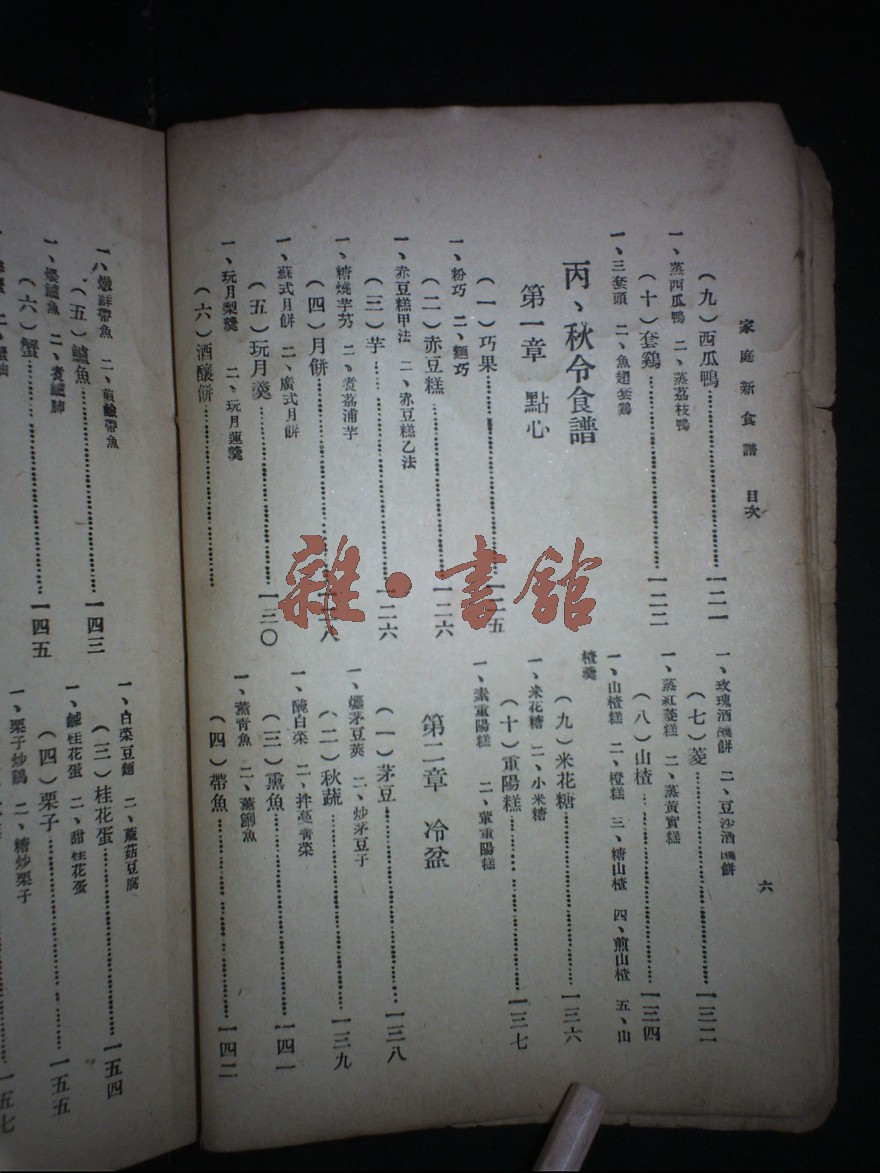 家庭新食譜 目次
六
（九）西瓜鴨……一二一
一、蒸西瓜鴨 二、蒸荔枝鴨
（十）套鷄……一二二
一、三套頭 二、魚翅套鷄
丙、秋令食譜
第一章 點心
（一）巧果……一二五
一、粉巧 二、麵巧
（二）赤豆糕……一二六
一、赤豆糕甲法 二、赤豆糕乙法
（三）芋……一二六
一、糖燒芋艿 二、煮荔浦芋
（四）月餅……一二八
一、蘇式月餅 二、廣式月餅
（五）玩月羹……一三〇
一、玩月梨羹 二、玩月蓮羹
（六）酒釀餅……
一、玫瑰酒釀餅 二、豆沙酒釀餅
（七）菱……一三二
一、蒸紅菱糕 二、蒸黃實糕
（八）山楂……一三四
一、山楂糕 二、橙糕 三、糖山楂 四、煎山楂 五、山
楂羹
（九）米花糖……一三六
一、米花糖 二、小米糖
（十）重陽糕……一三七
一、素重陽糕 二、葷重陽糕
第二章 冷盆
（一）茅豆……一三八
一、爊茅豆莢 二、炒茅豆子
（二）秋蔬……一三九
一、醃白菜 二、拌蔓青菜
（三）熏魚……一四一
一、薰青魚 二、薰鯽魚
（四）帶魚……一四二
一、燉鮮帶魚 二、煎鹹帶魚
（五）鱸魚……一四三
鱸魚 二、煮鱸肺
（六）蟹……一四五
一、白菜豆麵 二、蘑菇豆腐
（三）桂花蛋……一五四
一、鹹桂花蛋 二、甜桂花蛋
（四）栗子……一五五
一、栗子炒鷄 二、糖炒栗子
一五七
雜·書館